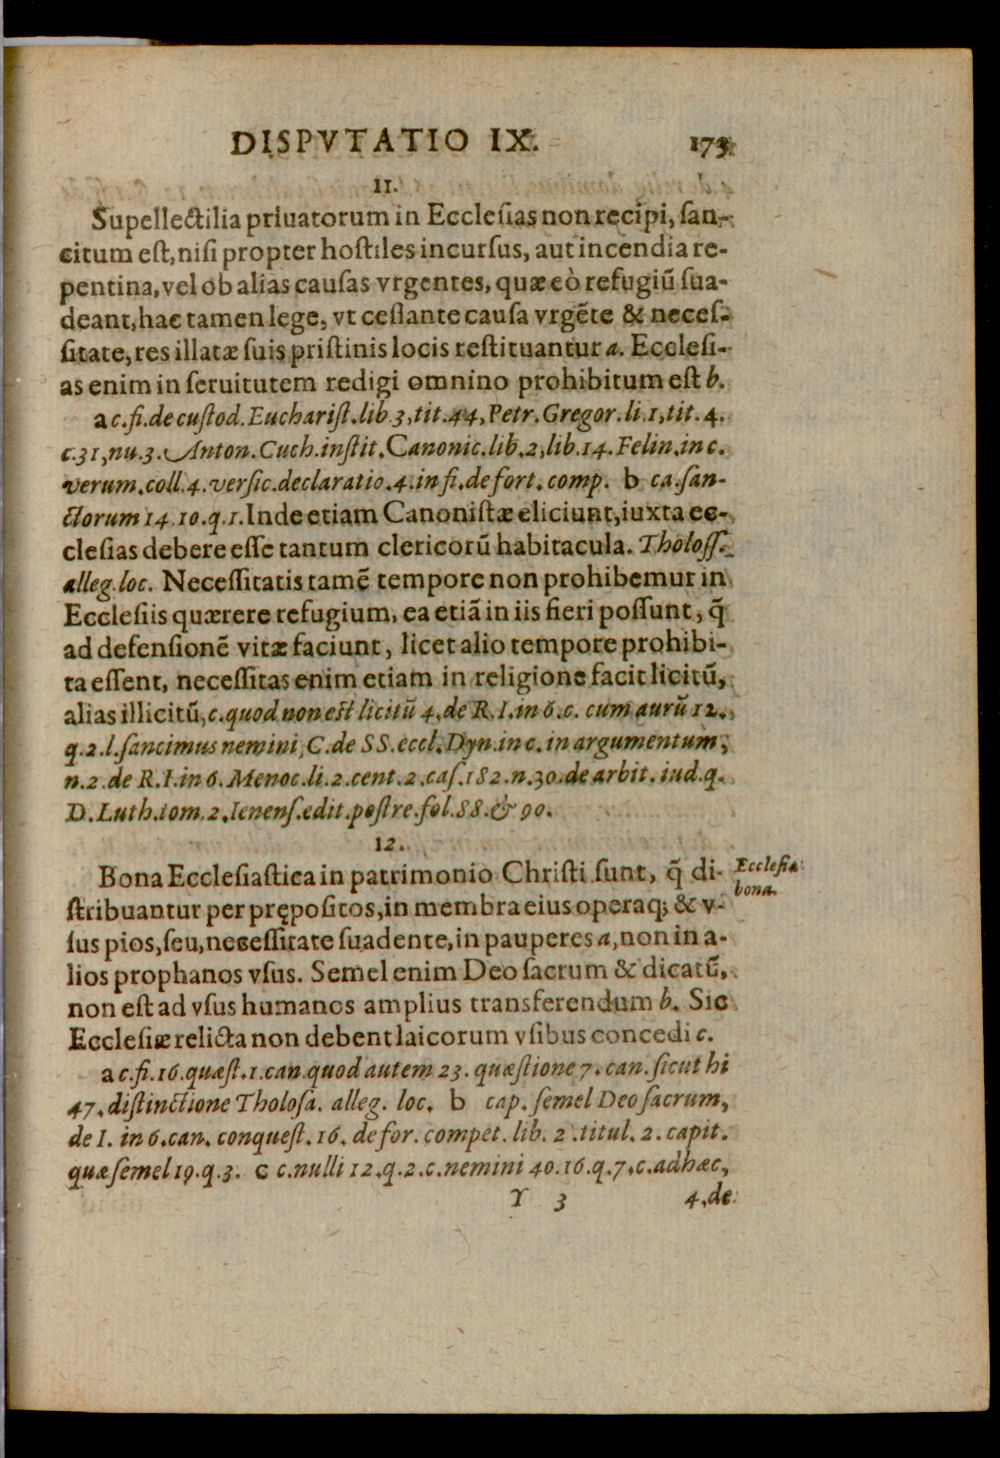 DISPVTATIO IX. 173
11.
Supellectilia priuatorum in Ecclesias non recipi, san-
citum est, nisi propter hostiles incursus, aut incendia re-
pentina, vel ob alias causas vrgentes, quæ eò refugiũ sua-
deant, hac tamen lege, vt cessante causa vrgẽte & neces-
sitate, res illatæ suis pristinis locis restituantur a. Ecclesi-
as enim in seruitutem redigi omnino prohibitum est b.
a c. fi. de custod. Eucharist. lib. 3, tit. 44, Petr. Gregor. li. 1, tit. 4.
c. 31, nu. 3. Anton. Cuch. instit. Canonic. lib. 2, lib. 14. Felin. in c.
verum. coll. 4. versic. declaratio. 4. in fi. de fort. comp. b ca. san-
ctorum 14. 10. q. 1. Inde etiam Canonistæ eliciunt, iuxta ec-
clesias debere esse tantum clericorũ habitacula. Tholoss.
alleg. loc. Necessitatis tamẽ tempore non prohibemur in
Ecclesiis quærere refugium, ea etiã in iis fieri possunt, q̃
ad defensionẽ vitæ faciunt, licet alio tempore prohibi-
ta essent, necessitas enim etiam in religione facit licitũ,
alias illicitũ, c. quod non est licitũ 4. de R. I. in 6. c. cum aurũ 12.
q. 2. l. sancimus nemini, C. de SS. eccl. Dyn. in c. in argumentum,
n. 2. de R. I. in 6. Menoc. li. 2. cent. 2. cas. 182. n. 30. de arbit. iud. q.
D. Luth. tom. 2. Ienens. edit. postre. fol. 88. & 90.
12.
Bona Ecclesiastica in patrimonio Christi sunt, q̃ di-
Ecclesiæ
bona.
stribuantur per prępositos, in membra eius operaq; & v-
sus pios, seu, necessitate suadente, in pauperes a, non in a-
lios prophanos vsus. Semel enim Deo sacrum & dicatũ,
non est ad vsus humanos amplius transferendum b. Sic
Ecclesiæ relicta non debent laicorum vsibus concedi c.
a c. fi. 16. quæst. 1. can. quod autem 23. quæstione 7. can. sicut hi
47. distinctione Tholosa. alleg. loc. b cap. semel Deo sacrum,
de I. in 6. can. conquest. 16. de for. compet. lib. 2. titul. 2. capit.
quæ semel 19. q. 3. c c. nulli 12. q. 2. c. nemini 40. 16. q. 7. c. adhæc,
Y 3 4. de